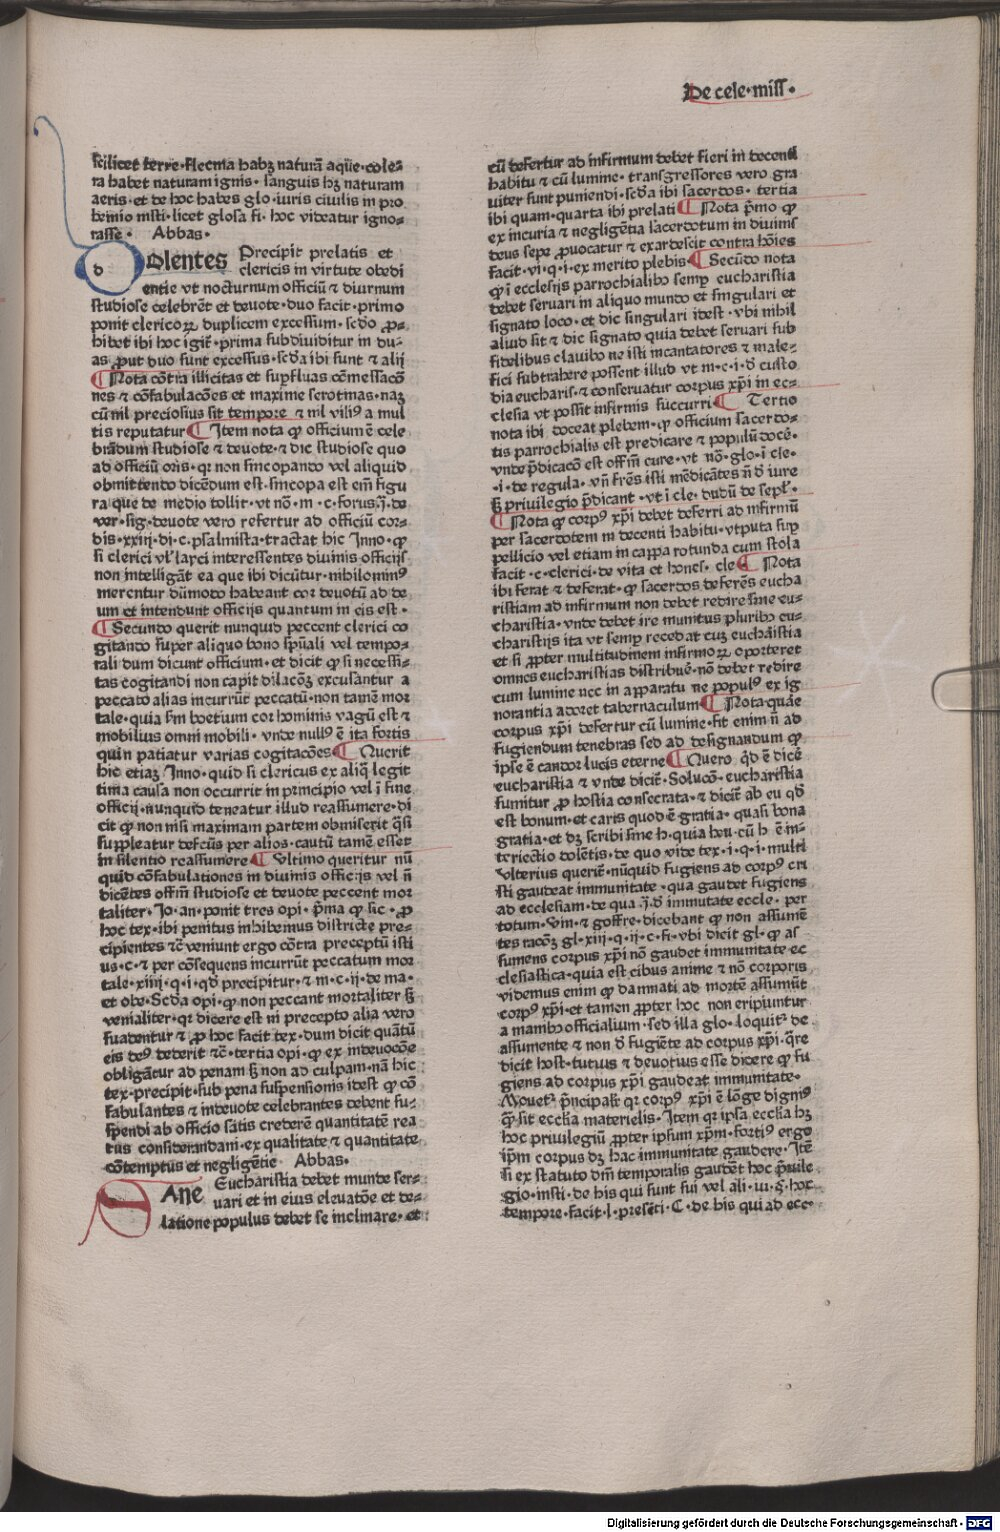 De cele·miss·
scilicet terre·flecma habꝫ naturā aque·cole-
ra habet naturam ignis·sanguis hꝫ naturam
aeris·et de hoc habes glo·iuris ciuilis in pro
hemio insti·licet glosa fi·hoc videatur igno-
rasse· Abbas·
dOlentes Precipit prelatis et
clericis in virtute obedi
entie vt nocturnum officiū ⁊ diurnum
studiose celebrēt et deuote·duo facit·primo
ponit clericoꝝ duplicem excessum·scdo ꝓ-
hibet ibi hoc igit᷑·prima subdiuiditur in du-
as ꝓut duo sunt excessus·scd̄a ibi sunt ⁊ alij
¶ Nota cōtra illicitas et supfluas cōmessacō
nes ⁊ cōfabulacōes et maxime serotinas·naꝫ
cū nil preciosius sit tempore ⁊ nil vilius a mul
tis reputatur ¶ Item nota ꝙ officium ē cele
brādum studiose ⁊ deuote·⁊ dic studiose quo
ad officiū oris·qꝛ non sincopando vel aliquid
obmittendo dicēdum est·sincopa est em̄ figu
ra que de medio tollit·vt no·in·c·forus·§·de
ver·sig·deuote vero refertur ad officiū cor-
dis·xxiij·di·c·psalmista·tractat hic Inno·ꝙ
si clerici vl' layci interessentes diuinis officijs
non intelligāt ea que ibi dicūtur·nihilomin⁹
merentur dūmodo habeant cor deuotū ad de
um et intendunt officijs quantum in eis est·
¶ Secundo querit nunquid peccent clerici co
gitando super aliquo bono spūali vel tempo-
rali dum dicunt officium·et dicit ꝙ si necessi-
tas cogitandi non capit dilacōꝫ excusantur a
peccato alias incurrūt peccatū·non tamē mor
tale·quia sm boetium cor hominis vagū est ⁊
mobilius omni mobili·vnde null⁹ ē ita fortis
quin patiatur varias cogitacōes ¶ Querit
hic etiaꝫ Inno·quid si clericus ex aliq̄ legit
tima causa non occurrit in principio vel ī fine
officij·nunquid teneatur illud reassumere·di
cit ꝙ non nisi maximam partem obmiserit q̄si
suppleatur defcūs per alios·cautū tamē esset
in silentio reassumere ¶ Vltimo queritur nū
quid cōfabulationes in diuinis officijs vel n̄
dicētes offm̄ studiose et deuote peccent mor
taliter·Jo·an·ponit tres opi·p̄ma ꝙ sic·ꝓ
hoc tex·ibi penitus inhibemus districte pre-
cipientes ⁊c̄ veniunt ergo cōtra preceptū isti
us·c·⁊ per cōsequens incurrūt peccatum mor
tale·xiiij·q·i·qd̄ precipitur·⁊ in·c·ij·de ma-
et obe·Scd̄a opi·ꝙ non peccant mortaliter ꝫ
venialiter·qꝛ dicere est in precepto alia vero
suadentur ⁊ ꝓ hoc facit tex·dum dicit quātū
eis de⁹ dederit ⁊c̄·tertia opi·ꝙ ex indeuocōe
obligātur ad penam ꝫ non ad culpam·nā hic
tex·precipit·sub pena suspensionis idest ꝙ cō
fabulantes ⁊ indeuote celebrantes debent su-
spendi ab officio satis crederē quantitatē rea
tus considerandam·ex qualitate ⁊ quantitate
cōtemptus et negligētie Abbas·
SAne Eucharistia debet munde ser-
uari et in eius eleuatōe et de-
latione populus debet se inclinare·et
cū defertur ad infirmum debet fieri in decenti
habitu ⁊ cū lumine·transgressores vero gra
uiter sunt puniendi·scd̄a ibi sacerdos·tertia
ibi quam·quarta ibi prelati ¶ Nota p̄mo ꝙ
ex incuria ⁊ negligētia sacerdotum in diuinis
deus sepe ꝓuocatur ⁊ exardescit contra hoīes
facit·vi·q·i·ex merito plebis ¶ Secūdo nota
ꝙ ī ecclesijs parrochialibo semp eucharistia
debet seruari in aliquo mundo et singulari et
signato loco·et dic singulari idest·vbi nihil
aliud sit ⁊ dic signato quia debet seruari sub
fidelibus clauibo ne isti incantatores ⁊ male-
fici subtrahere possent illud vt in·c·i·d' custo
dia eucharis·⁊ conseruatur corpus xp̄i in ec-
clesia vt possit infirmis succurri ¶ Tertio
nota ibi doceat plebem·ꝙ officium sacerdo-
tis parrochialis est predicare ⁊ populū docē·
vnde p̄dicacō est offm̄ cure·vt no·glo·i cle·
·i·de regula·vn̄ frēs isti mēdicātes n̄ d' iure
ꝫ priuilegio p̄dicant·vt i cle·dudū de sepl'·
¶ Nota ꝙ corp⁹ xp̄i debet deferri ad infirmū
per sacerdotem in decenti habitu·vtputa sup
pellicio vel etiam in cappa rotunda cum stola
facit·c·clerici·de vita et hones·cle ¶ Nota
ibi ferat ⁊ deferat·ꝙ sacerdos deferēs eucha
ristiam ad infirmum non debet redire sine eu-
charistia·vnde debet ire munitus pluribo eu-
charistijs ita vt semp recedat cuꝫ euchāistia
et si ꝓpter multitudinem infirmoꝝ oporteret
omnes eucharistias distribuē·nō debet redire
cum lumine nec in apparatu ne popul⁹ ex ig
norantia adoret tabernaculum ¶ Nota·quare
corpus xp̄i defertur cū lumine·fit enim n̄ ad
fugiendum tenebras sed ad designandum ꝙ
ipse ē candor lucis eterne ¶ Quero qd̄ ē dicē
eucharistia ⁊ vnde dicit᷑·Solucō·eucharistia
sumitur ꝓ hostia consecrata·⁊ dicit᷑ ab eu qd̄
est bonum·et caris quod ē gratia·quasi bona
gratia·et dꝫ scribi sine h·quia heu·cū h ē in-
teriectio dolētis·de quo vide tex·i·q·i·multi
Vlterius querit᷑·nūquid fugiens ad corp⁹ cri
sti gaudeat immunitate·qua gaudet fugiens
ad ecclesiam·de qua·§·d' immutate eccle·per
totum·Vin·⁊ goffre·dicebant ꝙ non assumē
tes racōꝫ gl·xiij·q·ij·c·fi·vbi dicit gl·ꝙ as
sumens corpus xp̄i nō gaudet immunitate ec
clesiastica·quia est cibus anime ⁊ nō corporis
videmus enim ꝙ damnati ad mortē assumūt
corp⁹ xp̄i·et tamen ꝓpter hoc non eripiuntur
a manibo officialium·sed illa glo·loquit᷑ de
assumente ⁊ non d' fugiēte ad corpus xp̄i·q̄re
dicit host·tutius ⁊ deuotius esse dicere ꝙ fu
giens ad corpus xp̄i gaudeat immunitate·
Mouet᷑ p̄ncipalr̄ qꝛ corp⁹ xp̄i ē lōge digni⁹
q̄ sit eccl'ia materielis·Item qꝛ ipsa eccl'ia hꝫ
hoc priuilegiū ꝓpter ipsum xp̄m·forti⁹ ergo
ip̄m corpus dꝫ hac immunitate gaudere·Itē
si ex statuto dn̄i temporalis gaudēt hoc p̄uile
gio·insti·de his qui sunt sui vel ali·iu·§·hoc
tempore·facit·l·presēti·C·de his qui ad ecc-
Digitalisierung gefördert durch die Deutsche Forschungsgemeinschaft - DFG